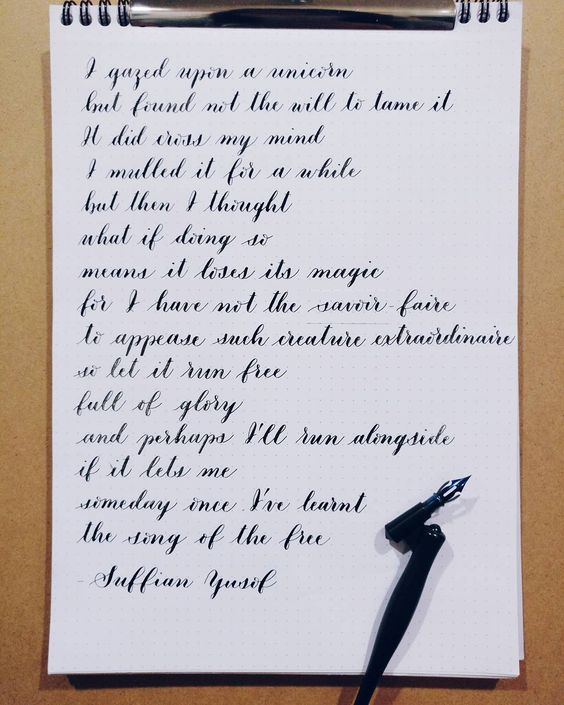 I gazed upon a unicorn
but found not the will to tame it
It did cross my mind
I mulled it for a while
but then I thought
what if doing so
means it loses its magic
for I have not the savoir-faire
to appease such creature extraordinaire
so let it run free
full of glory
and perhaps I'll run alongside
if it lets me
someday once I've learnt
the song of the free
- Suffian Yusof